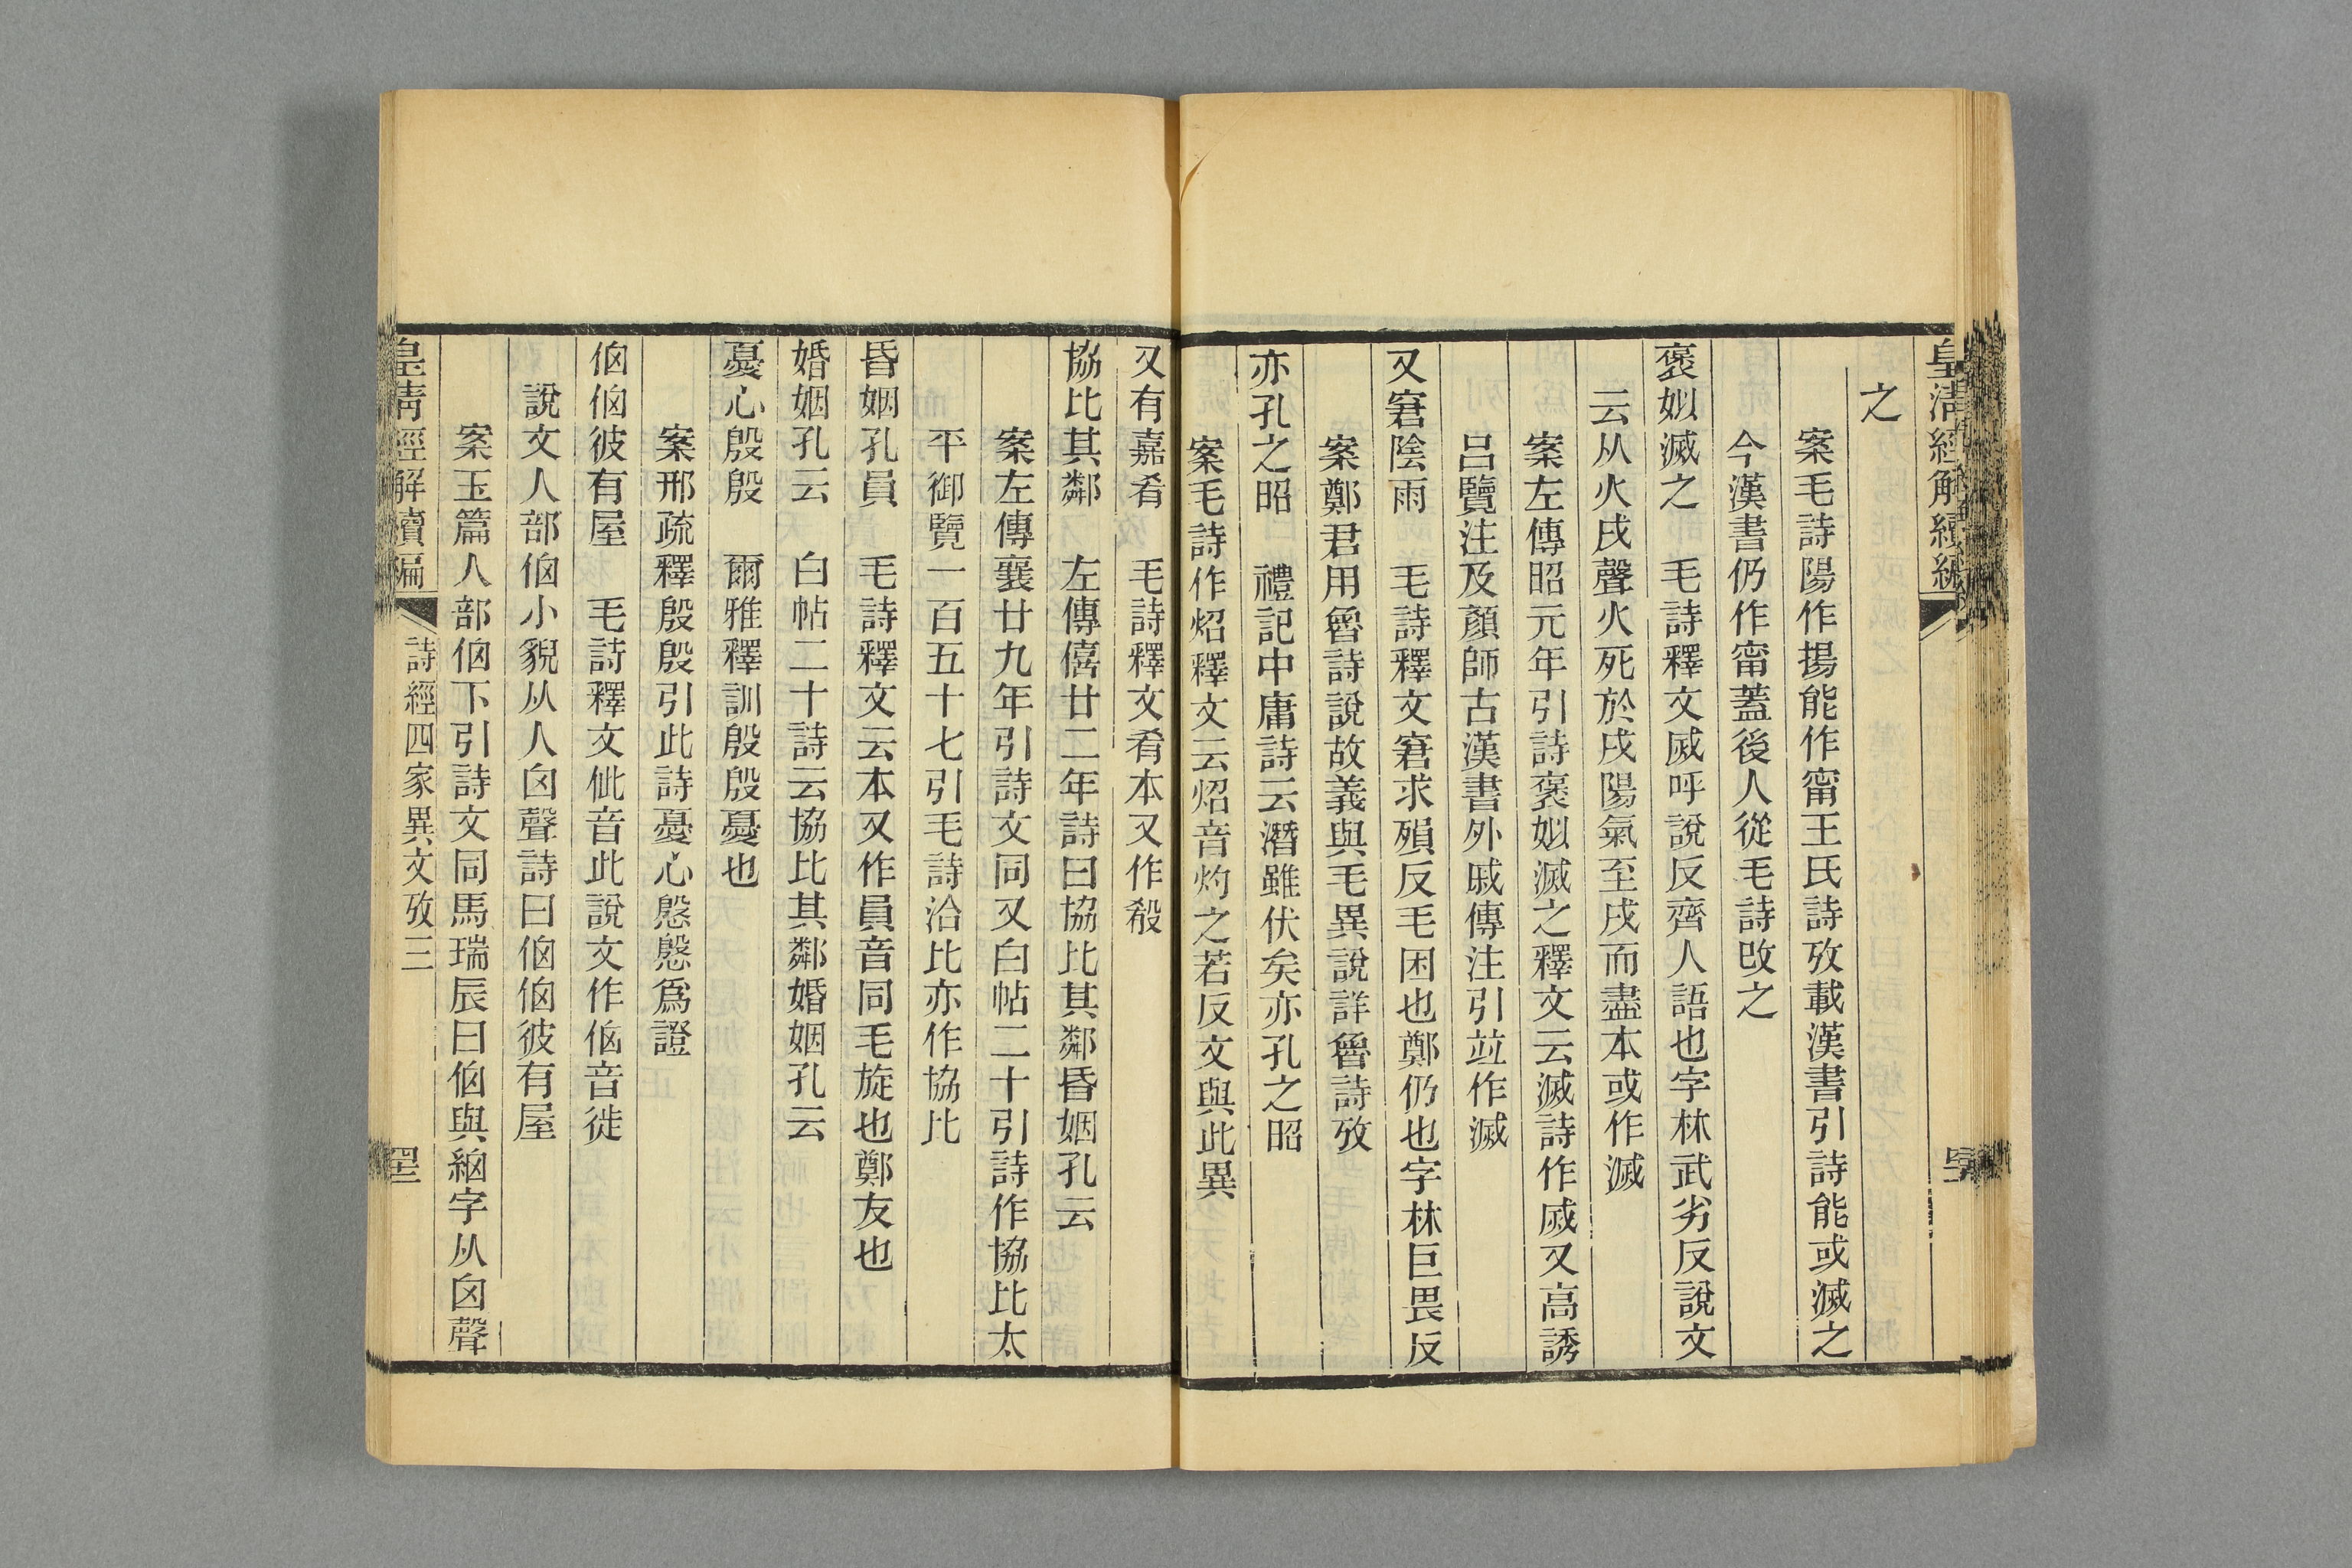 皇清經解續編
之
案毛詩陽作揚能作甯王氏詩攷載漢書引詩能或滅之
今漢書仍作甯蓋後人從毛詩改之
褒姒滅之　毛詩釋文烕呼說反齊人語也字林武劣反說文
云从火戌聲火死於戌陽氣至戌而盡本或作滅
案左傳昭元年引詩褒姒滅之釋文云滅詩作烕又高誘
呂覽注及顏師古漢書外戚傳注引竝作滅
又窘陰雨　毛詩釋文窘求殞反毛困也鄭仍也字林巨畏反
案鄭君用魯詩說故義與毛異說詳魯詩攷
亦孔之昭　禮記中庸詩云潛雖伏矣亦孔之昭
案毛詩作炤釋文云炤音灼之若反文與此異
又有嘉肴　毛詩釋文肴本又作殽
協比其鄰　左傳僖廿二年詩曰協比其鄰昏姻孔云
案左傳襄廿九年引詩文同又白帖二十引詩作協比太
平御覽一百五十七引毛詩洽比亦作協比
昏姻孔員　毛詩釋文云本又作員音同毛旋也鄭友也
婚姻孔云　白帖二十詩云協比其鄰婚姻孔云
憂心殷殷　爾雅釋訓殷殷憂也
案邢疏釋殷殷引此詩憂心慇慇爲證
㑋㑋彼有屋　毛詩釋文佌音此說文作㑋音徙
說文人部㑋小貎从人囟聲詩曰㑋㑋彼有屋
案玉篇人部㑋下引詩文同馬瑞辰曰㑋與細字从囟聲
皇清經解續編
詩經四家異文攷三